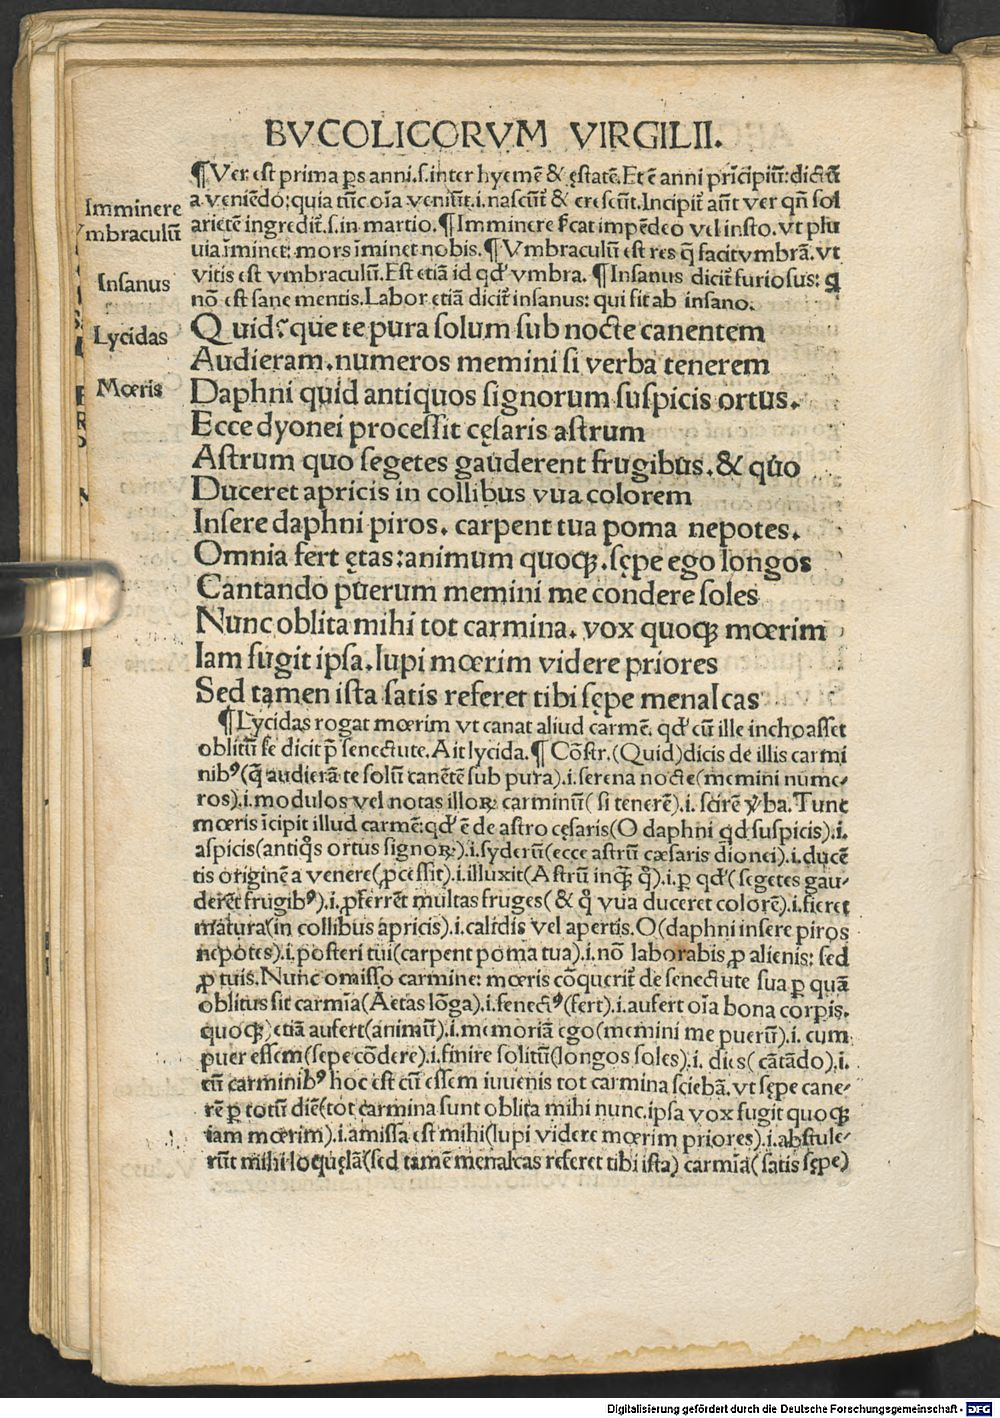 BVCOLICORVM VIRGILII.
¶Ver est prima ps̄ anni.s.inter hyemē & ęstatē.Et ē anni prīcipiū: dictū
a veniēdo: quia tūc oīa veniūt.i.nascūt̄ & crescūt.Incipit aūt ver qn̄ sol
Imminere
arietē ingredit̄.s.in martio.¶Imminere s̄cat impēdeo vel insto.vt plu
Vmbraculū
uia īminet: mors īminet nobis.¶Vmbraculū est res q̄ facit vmbrā.vt
vitis est vmbraculū.Est etiā id qd' vmbra. ¶Insanus dicit̄ furiosus: q
Insanus
nō est sane mentis.Labor etiā dicit̄ insanus: qui fit ab insano.
Lycidas
Quid? que te pura solum sub nocte canentem
Audieram.numeros memini si verba tenerem
Mœris
Daphni quid antiquos signorum suspicis ortus.
Ecce dyonei processit cęsaris astrum
Astrum quo segetes gauderent frugibus.& quo
Duceret apricis in collibus vua colorem
Insere daphni piros. carpent tua poma nepotes.
Omnia fert ętas: animum quoqꝫ.sępe ego longos
Cantando puerum memini me condere soles
Nunc oblita mihi tot carmina. vox quoqꝫ mœrim
Iam fugit ipsa.lupi mœrim videre priores
Sed tamen ista satis referet tibi sępe menalcas
¶Lycidas rogat mœrim vt canat aliud carmē. qd' cū ille inchoasset
oblitū se dicit p̄ senectute.Ait lycida.¶ Cōstr.(Quid)dicis de illis carmi
nibꝰ(q̄ audierā te solū canētē sub pura).i.serena nocte(memini nume-
ros).i.modulos vel notas illoꝝ carminū( si tenerē).i. scirē v̄ba.Tunc
mœris īcipit illud carmē: qd' ē de astro cęsaris(O daphni qd suspicis).i.
aspicis(antiq̊s ortus signoꝝ).i.syderū(ecce astrū cæsaris dionei).i.ducē
tis originē a venere(ꝓcessit).i.illuxit(Astrū inqꝫ q̊).i.ꝑ qd'(segetes gau-
derēt frugibꝰ).i.ꝓferrēt multas fruges( & q̊ vua duceret colorē).i.fieret
matura(in collibus apricis).i.calidis vel apertis.O(daphni insere piros
nepotes).i.posteri tui(carpent poma tua).i.nō laborabis ꝓ alienis: sed
ꝓ tuis.Nunc omisso carmine: mœris cōquerit̄ de senectute sua ꝑ quā
oblitus sit carmīa(Aetas lōga).i.senectꝰ(fert).i.aufert oīa bona corpis.
quoqꝫ) etiā aufert(animū).i.memoriā ego(memini me puerū).i. cum
puer essem(sępe cōdere).i.finire solitū(longos soles).i. dies( cātādo).i.
cū carminibꝰ hoc est cū essem iuuenis tot carmina sciebā. vt sępe cane-
rē ꝑ totū diē(tot carmina sunt oblita mihi nunc.ipsa vox fugit quoqꝫ
iam mœrim).i.amissa est mihi(lupi videre mœrim priores).i.abstule-
rūt mihi loquelā(sed tamē menalcas referet tibi ista) carmīa( satis sępe)
Digitalisierung gefördert durch die Deutsche Forschungsgemeinschaft - DFG